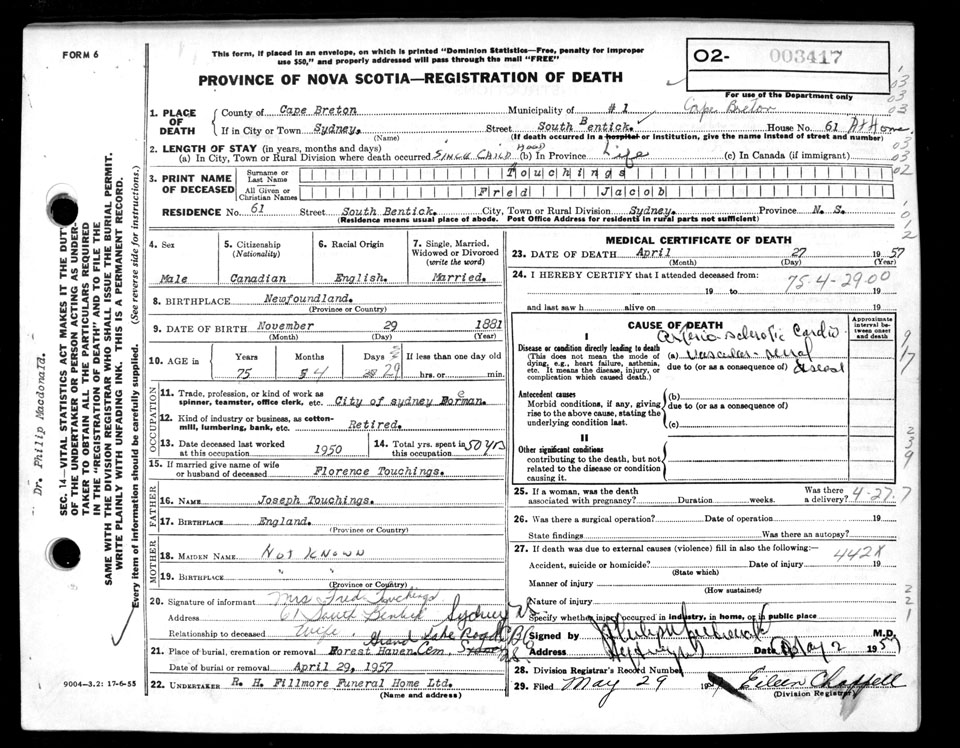 FORM 6
This form, if placed in an envelope, on which is printed "Dominion Statistics—Free, penalty for improper
use $50," and properly addressed will pass through the mail "FREE"
O2- 003417
For use of the Department only
PROVINCE OF NOVA SCOTIA—REGISTRATION OF DEATH
1. PLACE OF DEATH
County of Cape Breton Municipality of #1 Cape Breton
If in City or Town Sydney. Street South Bentick. House No. 61 At Home
(Name) (If death occurred in a hospital or institution, give the name instead of street and number)
2. LENGTH OF STAY (in years, months and days)
(a) In City, Town or Rural Division where death occurred SINCE CHILD HOOD (b) In Province Life (c) In Canada (if immigrant)
3. PRINT NAME OF DECEASED
Surname or Last Name Touchings
All Given or Christian Names Fred Jacob
RESIDENCE No. 61 Street South Bentick. City, Town or Rural Division Sydney. Province N. S.
(Residence means usual place of abode. Post Office Address for residents in rural parts not sufficient)
4. Sex
Male
5. Citizenship
(Nationality)
Canadian
6. Racial Origin
English.
7. Single, Married, Widowed or Divorced
(write the word)
Married.
8. BIRTHPLACE Newfoundland.
(Province or County)
9. DATE OF BIRTH November 29 1881
(Month) (Day) (Year)
10. AGE in Years Months Days If less than one day old
75 4 29 hrs. or min.
OCCUPATION
11. Trade, profession, or kind of work as
spinner, teamster, office clerk, etc. City of sydney Forman.
12. Kind of industry or business, as cotton-
mill, lumbering, bank, etc. Retired.
13. Date deceased last worked
at this occupation 1950
14. Total yrs. spent in
this occupation 50 yrs
15. If married give name of wife
or husband of deceased Florence Touchings.
FATHER
16. NAME Joseph Touchings.
17. BIRTHPLACE England.
(Province or Country)
MOTHER
18. MAIDEN NAME Not Known
19. BIRTHPLACE " "
(Province or Country)
20. Signature of informant Mrs Fred Touchings
Address 61 South Bentick Sydney NS.
Relationship to deceased Wife.
Grand Lake Road C.B.
21. Place of burial, cremation or removal Forest Haven Cem.
Date of burial or removal April 29, 1957
22. UNDERTAKER R. H. Fillmore Funeral Home Ltd.
(Name and address)
MEDICAL CERTIFICATE OF DEATH
23. DATE OF DEATH April 27 1957
(Month) (Day) (Year)
24. I HEREBY CERTIFY that I attended deceased from:
75-4-29-00
19 to 19
and last saw h alive on 19
CAUSE OF DEATH
Approximate interval between onset and death
I
Disease or condition directly leading to death
(This does not mean the mode of
dying, e.g., heart failure, asthenia,
etc. It means the disease, injury, or
complication which caused death.)
Arterio-sclerotic Cardio
(a) vascular-renal
due to (or as a consequence of)
Antecedent causes
Morbid conditions, if any, giving
rise to the above cause, stating the
underlying condition last.
(b)
due to (or as a consequence of)
(c)
II
Other significant conditions
contributing to the death, but not
related to the disease or condition
causing it.
25. If a woman, was the death
associated with pregnancy? Duration weeks. Was there
a delivery? 4-27.7
26. Was there a surgical operation? Date of operation 19
State findings Was there an autopsy?
27. If death was due to external causes (violence) fill in also the following:
Accident, suicide or homicide? Date of injury 19
442X
(State which)
Manner of injury
(How sustained)
Nature of injury
Specify whether injury occurred in industry, in home, or in public place
Signed by M.D.
Address Date May 2 1957
28. Division Registrar's Record Number
29. Filed May 29 1957 Eileen Chappell
(Division Registrar)
9004-3.2: 17-6-55
Dr. Philip Macdonald.
SEC. 14—VITAL STATISTICS ACT MAKES IT THE DUTY
OF THE UNDERTAKER OR PERSON ACTING AS UNDER-
TAKER TO OBTAIN ALL THE PARTICULARS REQUIRED
IN THE "REGISTRATION OF DEATH" AND TO FILE THE
SAME WITH THE DIVISION REGISTRAR WHO SHALL ISSUE THE BURIAL PERMIT.
WRITE PLAINLY WITH UNFADING INK. THIS IS A PERMANENT RECORD.
Every item of information should be carefully supplied. (See reverse side for instructions.)